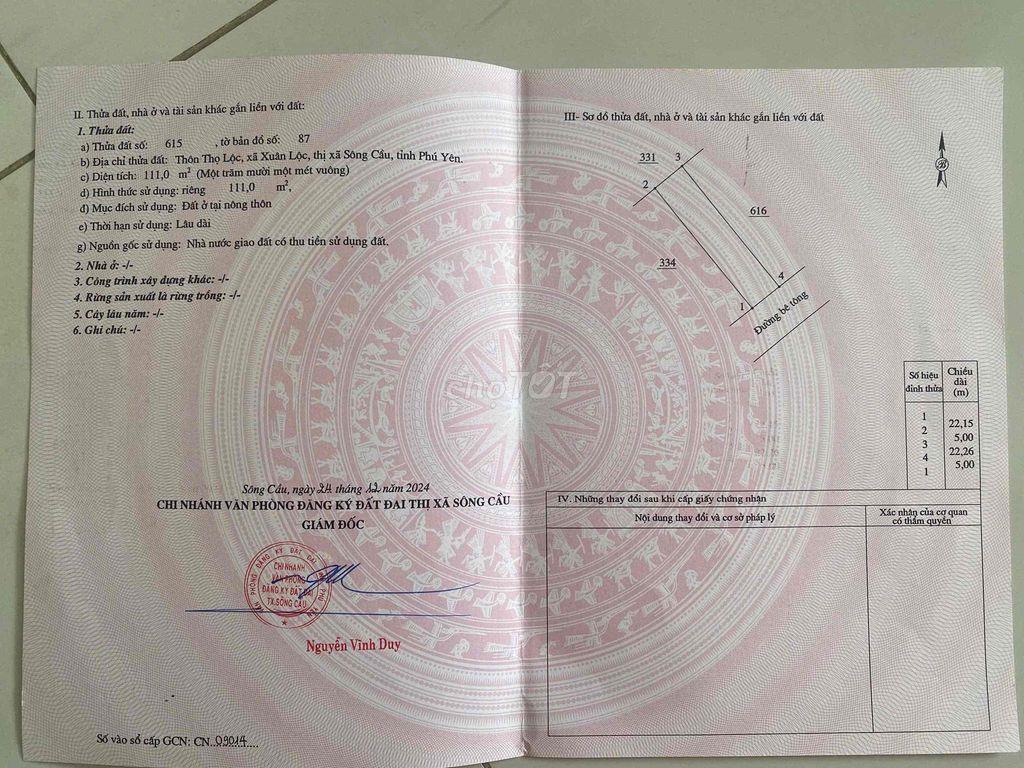 II. Thửa đất, nhà ở và tài sản khác gắn liền với đất:
1. Thửa đất:
a) Thửa đất số: 615 , tờ bản đồ số: 87
b) Địa chỉ thửa đất: Thôn Thọ Lộc, xã Xuân Lộc, thị xã Sông Cầu, tỉnh Phú Yên.
c) Diện tích: 111,0 m² (Một trăm mười một mét vuông)
d) Hình thức sử dụng: riêng 111,0 m²,
đ) Mục đích sử dụng: Đất ở tại nông thôn
e) Thời hạn sử dụng: Lâu dài
g) Nguồn gốc sử dụng: Nhà nước giao đất có thu tiền sử dụng đất.
2. Nhà ở: -/-
3. Công trình xây dựng khác: -/-
4. Rừng sản xuất là rừng trồng: -/-
5. Cây lâu năm: -/-
6. Ghi chú: -/-
Sông Cầu, ngày 24 tháng 12 năm 2024
CHI NHÁNH VĂN PHÒNG ĐĂNG KÝ ĐẤT ĐAI THỊ XÃ SÔNG CẦU
GIÁM ĐỐC
CHI NHÁNH
VĂN PHÒNG
ĐĂNG KÝ ĐẤT ĐAI
TX.SÔNG CẦU
Nguyễn Vĩnh Duy
Số vào sổ cấp GCN: CN 09014
III- Sơ đồ thửa đất, nhà ở và tài sản khác gắn liền với đất
B
331
3
2
616
334
4
1
Đường bê tông
Số hiệu đỉnh thửa
Chiều dài (m)
1
22,15
2
5,00
3
22,26
4
5,00
1
IV. Những thay đổi sau khi cấp giấy chứng nhận
Nội dung thay đổi và cơ sở pháp lý
Xác nhận của cơ quan
có thẩm quyền
chợTỐT